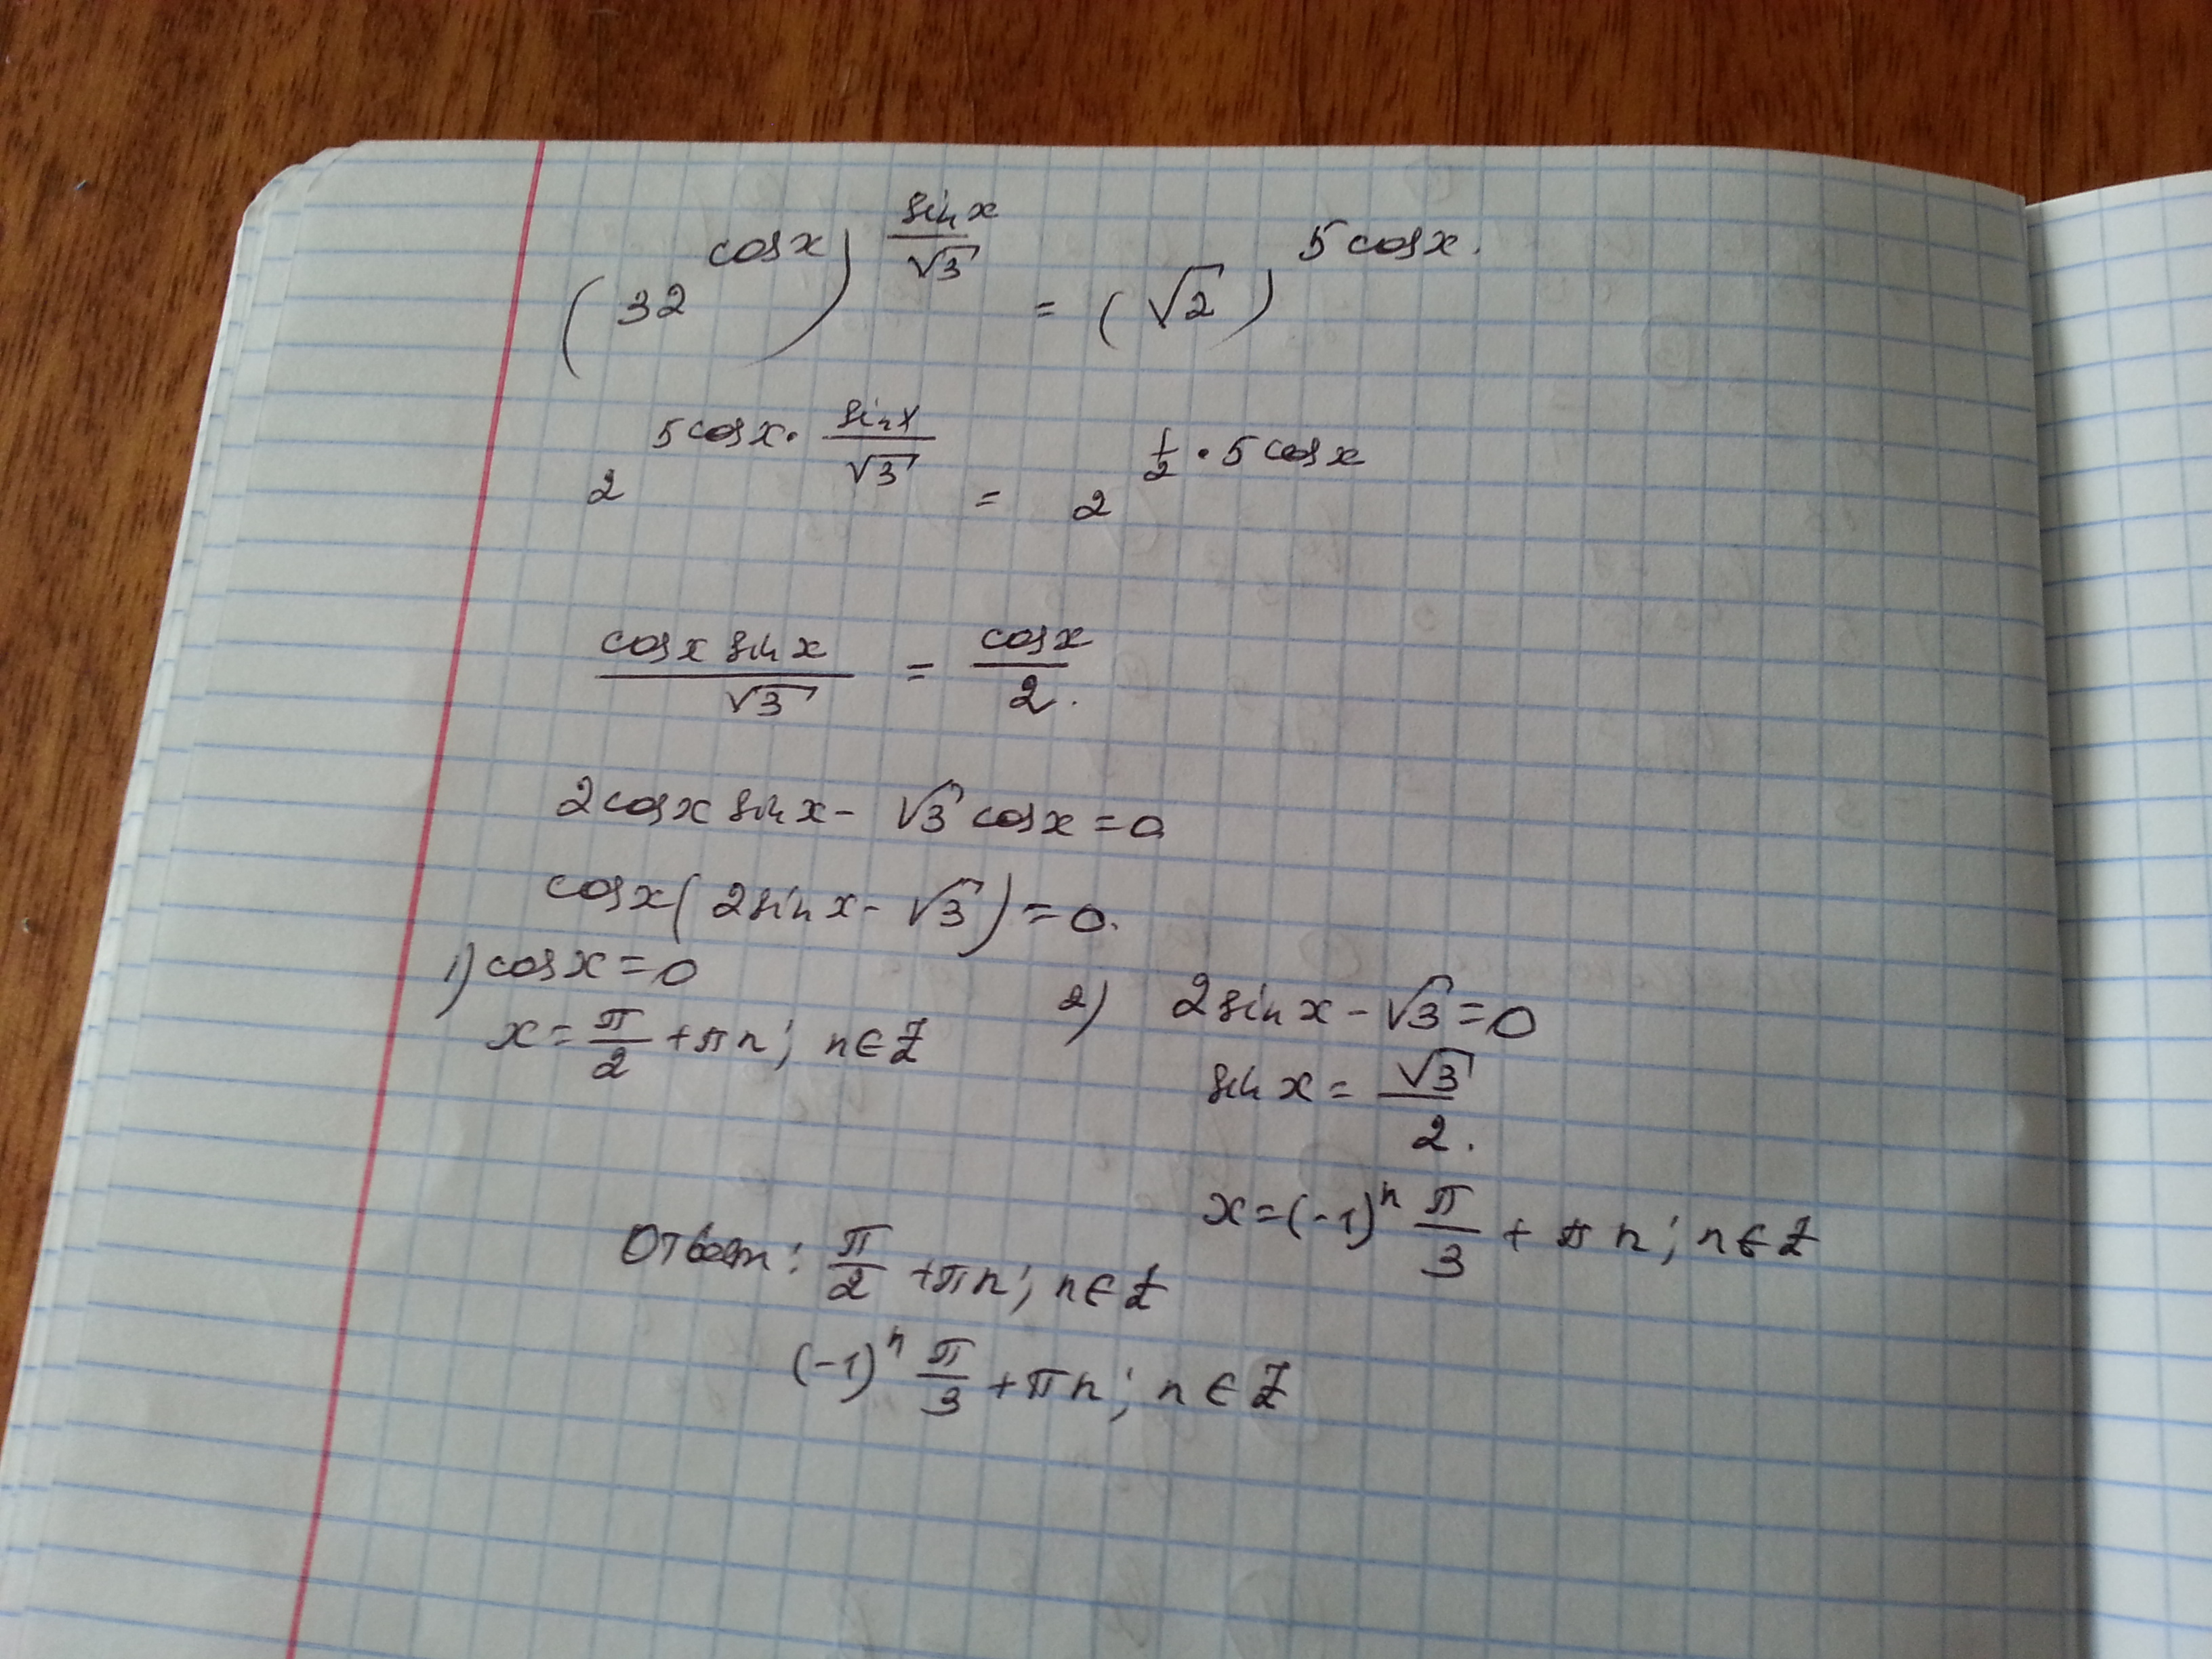 (32^cosx)^(sinx/√3) = (√2)^5cosx.
2^(5cosx·sinx/√3) = 2^(1/2·5cosx)
cosx sinx/√3 = cosx/2.
2cosx sinx - √3 cosx = 0
cosx(2sinx - √3) = 0.
1) cosx = 0
x = π/2 + πn; n∈Z
2) 2sinx - √3 = 0
sinx = √3/2.
x = (-1)^n π/3 + πn; n∈Z
Ответ: π/2 + πn; n∈Z
(-1)^n π/3 + πn; n∈Z